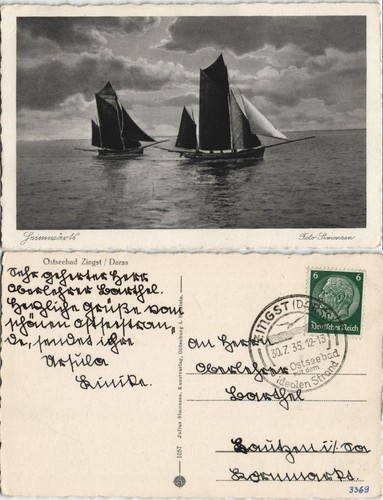 Heimwärts
Foto Simonsen
Ostseebad Zingst / Darss
Sehr geherter Herr
Oberlehrer Barthel.
Herzliche Grüße vom
schönen Ostseestran-
de, sendet ihre
Ursula
Linike.
1057 Julius Simonsen, Kunstverlag, Oldenburg i. Holstein.
6 6
Deutsches Reich
ZINGST (DARSS)
30.7.35.12-13
Ostseebad
mit dem
idealen Strand
An Herrn
Oberlehrer
Barthel
Bautzen i/Sa
Kornmarkt.
3369